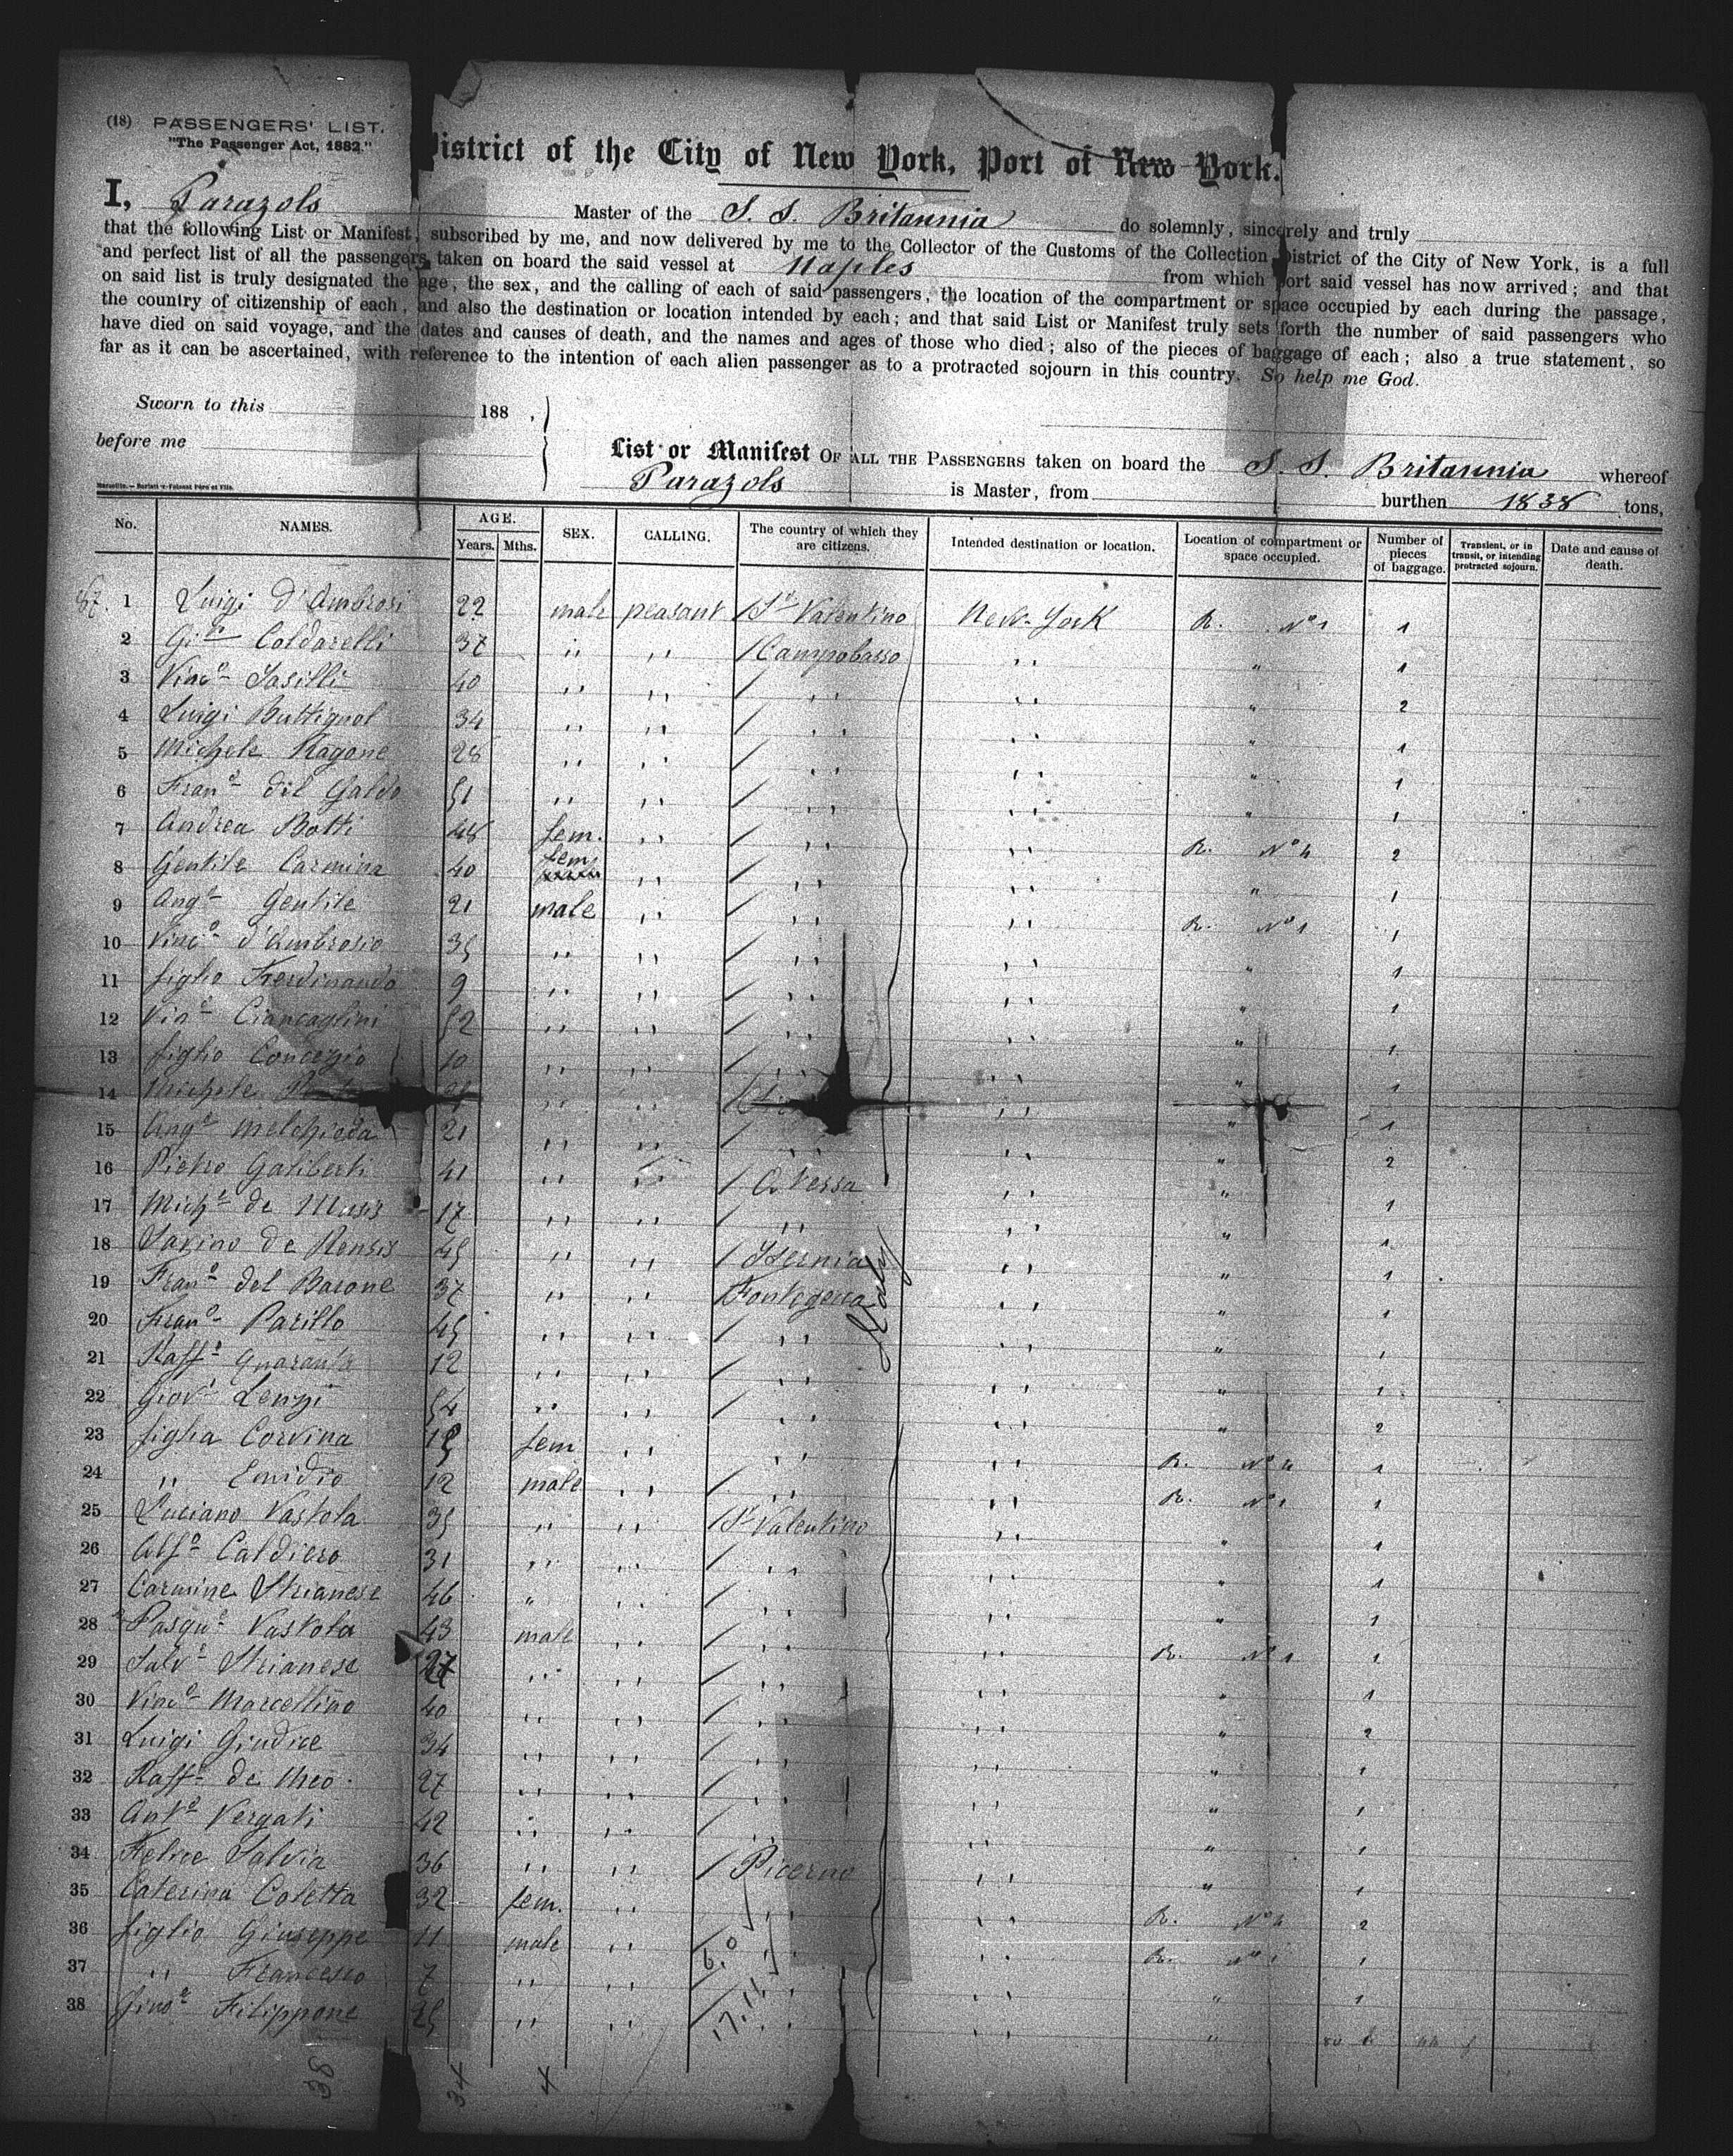 (18) PASSENGERS' LIST.
"The Passenger Act, 1882."
District of the City of New York, Port of New York.
I, Parazols Master of the S. S. Britannia do solemnly, sincerely and truly
that the following List or Manifest, subscribed by me, and now delivered by me to the Collector of the Customs of the Collection District of the City of New York, is a full
and perfect list of all the passengers taken on board the said vessel at Naples from which port said vessel has now arrived; and that
on said list is truly designated the age, the sex, and the calling of each of said passengers, the location of the compartment or space occupied by each during the passage,
the country of citizenship of each, and also the destination or location intended by each; and that said List or Manifest truly sets forth the number of said passengers who
have died on said voyage, and the dates and causes of death, and the names and ages of those who died; also of the pieces of baggage of each; also a true statement, so
far as it can be ascertained, with reference to the intention of each alien passenger as to a protracted sojourn in this country. So help me God.
Sworn to this 188 ,
before me
List or Manifest OF ALL THE PASSENGERS taken on board the S. S. Britannia whereof
Parazols is Master, from burthen 1838 tons,
No. NAMES. AGE. Years. Mths. SEX. CALLING. The country of which they are citizens. Intended destination or location. Location of compartment or space occupied. Number of pieces of baggage. Transient, or in transit, or intending protracted sojourn. Date and cause of death.
1 Luigi d'Ambrosi 22 male peasant St Valentino New-York R. No 1 1
2 Coldarelli 37 " " Campobasso " " 1
3 Vinco Sasilli 40 " " " " " 2
4 Luigi Buttignol 34 " " " " " 1
5 Michele Ragone 28 " " " " " 1
6 Frano del Galdo 51 " " " " " 1
7 Andrea Botti 48 fem. " " " R. No 4 2
8 Gentile Carmina 40 fem " " " " 1
9 Ango Gentile 21 male " " " R. No 1 1
10 Vinco d'Ambrosio 35 " " " " " 1
11 figlio Ferdinando 9 " " " " " 1
12 Vino Ciancaglini 52 " " " " " 1
13 figlio Concezio 10 " " " " " 1
14 Michele " " " " 1
15 Ango Melchieda 21 " " " " " 2
16 Pietro Galiberti 41 " " Atessa " " 1
17 Miche de Musis 17 " " " " " 1
18 Savino de Rensis 45 " " Isernia " " 1
19 Frano del Barone 37 " " Fontegreca " " 1
20 Frano Parillo 45 " " " " " 1
21 Raffe Quaranta 12 " " " " " 1
22 Giovi Lenzi 54 " " " " " 2
23 figlia Corvina 15 fem " " " R. No 4 1
24 " Emidio 12 male " " " R. No 1 1
25 Luciano Vastola 35 " " St Valentino " " 1
26 Alfo Caldiero 31 " " " " " 1
27 Carmine Strianese 46 " " " " " 1
28 Pasque Vastola 43 male " " " R. No 1 1
29 Salve Strianese 27 " " " " " 1
30 Vinco Marcellino 40 " " " " " 2
31 Luigi Giudice 34 " " " " " 1
32 Raffe de Meo 27 " " " " " 1
33 Anto Vergati 42 " " " " " 1
34 Felice Salvia 36 " " Picerno " " 1
35 Caterina Coletta 32 fem. " " " R. No 4 2
36 figlio Giuseppe 11 male " " " R. No 1 1
37 " Francesco 7 " " " " " 1
38 Filippone 25 " " " " "
Italy
34 4